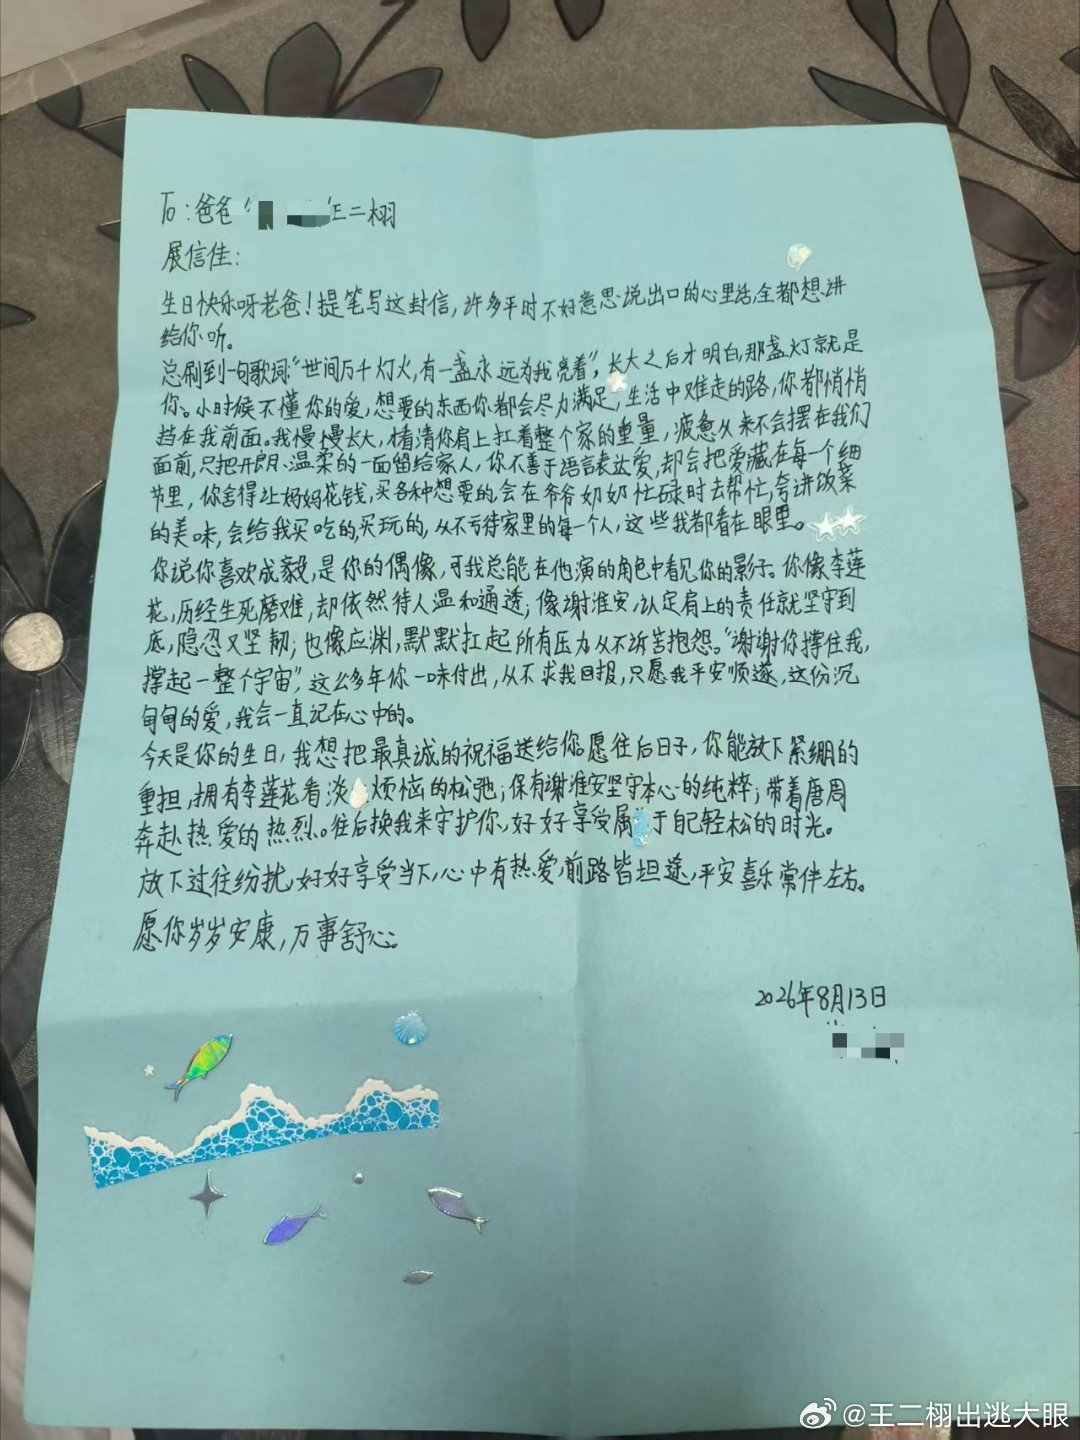 To：爸爸“ 王二栩
展信佳：
生日快乐呀老爸！提笔写这封信，许多平时不好意思说出口的心里话，全都想讲
给你听。
总刷到一句歌词“世间万千灯火，有一盏永远为我亮着”，长大之后才明白，那盏灯就是
你。小时候不懂你的爱，想要的东西你都会尽力满足，生活中难走的路，你都悄悄
挡在我前面。我慢慢长大，才看清你肩上扛着整个家的重量，疲惫从来不会摆在我们
面前，只把开朗、温柔的一面留给家人，你不善于语言表达爱，却会把爱藏在每一个细
节里，你舍得让妈妈花钱，买各种想要的，会在爷爷奶奶忙碌时去帮忙，夸讲饭菜
的美味，会给我买吃的，买玩的，从不亏待家里的每一个人，这些我都看在眼里。
你说你喜欢成毅，是你的偶像，可我总能在他演的角色中看见你的影子。你像李莲
花，历经生死磨难，却依然待人温和通透；像谢淮安，认定肩上的责任就坚守到
底，隐忍又坚韧；也像应渊，默默扛起所有压力从不诉苦抱怨。“谢谢你撑住我，
撑起一整个宇宙”，这么多年你一味付出，从不求我回报，只愿我平安顺遂，这份沉
甸甸的爱，我会一直记在心中的。
今天是你的生日，我想把最真诚的祝福送给你。愿往后日子，你能放下紧绷的
重担，拥有李莲花看淡 烦恼的松弛；保有谢淮安坚守本心的纯粹；带着唐周
奔赴热爱的热烈。往后换我来守护你，好好享受属于自己轻松的时光。
放下过往纷扰，好好享受当下，心中有热爱，前路皆坦途，平安喜乐常伴左右。
愿你岁岁安康，万事舒心。
2026年8月13日
@王二栩出逃大眼